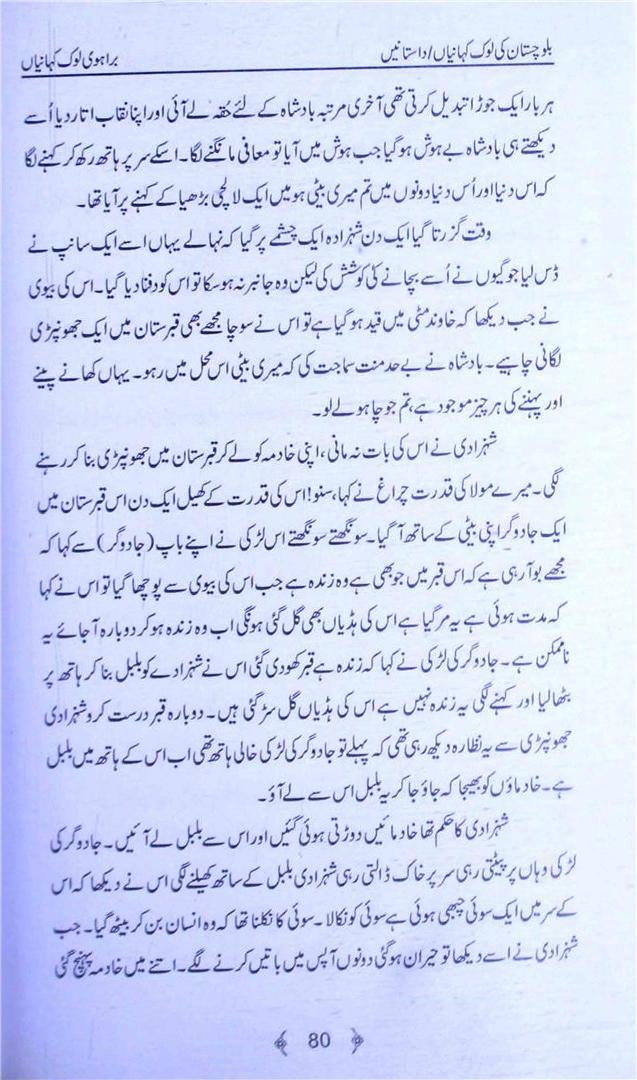 بلوچستان کی لوک کہانیاں/داستانیں
براہوی لوک کہانیاں
ہر بار ایک جوڑا تبدیل کرتی تھی آخری مرتبہ بادشاہ کے لئے حُقہ لے آئی اور اپنا نقاب اتار دیا اُسے
دیکھتے ہی بادشاہ بے ہوش ہو گیا جب ہوش میں آیا تو معافی مانگنے لگا۔ اسکے سر پر ہاتھ رکھ کر کہنے لگا
کہ اس دنیا اور اُس دنیا دونوں میں تم میری بیٹی ہو میں ایک لالچی بڑھیا کے کہنے پر آیا تھا۔
وقت گزرتا گیا ایک دن شہزادہ ایک چشمے پر گیا کہ نہا لے یہاں اسے ایک سانپ نے
ڈس لیا جوگیوں نے اُسے بچانے کی کوشش کی لیکن وہ جانبر نہ ہو سکا تو اس کو دفنا دیا گیا۔ اس کی بیوی
نے جب دیکھا کہ خاوند مٹی میں قید ہو گیا ہے تو اس نے سوچا مجھے بھی قبرستان میں ایک جھونپڑی
لگانی چاہیے۔ بادشاہ نے بے حد منت سماجت کی کہ میری بیٹی اس محل میں رہو۔ یہاں کھانے پینے
اور پہننے کی ہر چیز موجود ہے، تم جو چاہو لے لو۔
شہزادی نے اس کی بات نہ مانی، اپنی خادمہ کو لے کر قبرستان میں جھونپڑی بنا کر رہنے
لگی۔ میرے مولا کی قدرت چراغ نے کہا، سنو! اس کی قدرت کے کھیل ایک دن اس قبرستان میں
ایک جادوگر اپنی بیٹی کے ساتھ آ گیا۔ سونگھتے سونگھتے اس لڑکی نے اپنے باپ (جادوگر) سے کہا کہ
مجھے بو آرہی ہے کہ اس قبر میں جو بھی ہے وہ زندہ ہے جب اس کی بیوی سے پوچھا گیا تو اس نے کہا
کہ مدت ہوئی ہے یہ مر گیا ہے اس کی ہڈیاں بھی گل گئی ہونگی اب وہ زندہ ہو کر دوبارہ آ جائے یہ
ناممکن ہے۔ جادوگر کی لڑکی نے کہا کہ زندہ ہے قبر کھودی گئی اس نے شہزادے کو بلبل بنا کر ہاتھ پر
بٹھا لیا اور کہنے لگی یہ زندہ نہیں ہے اس کی ہڈیاں گل سڑ گئی ہیں۔ دوبارہ قبر درست کرو شہزادی
جھونپڑی سے یہ نظارہ دیکھ رہی تھی کہ پہلے تو جادوگر کی لڑکی خالی ہاتھ تھی اب اس کے ہاتھ میں بلبل
ہے۔ خادماؤں کو بھیجا کہ جاؤ جا کر یہ بلبل اس سے لے آؤ۔
شہزادی کا حکم تھا خادمائیں دوڑتی ہوئی گئیں اور اس سے بلبل لے آئیں۔ جادوگر کی
لڑکی وہاں پر پیٹتی رہی سر پر خاک ڈالتی رہی شہزادی بلبل کے ساتھ کھیلنے لگی اس نے دیکھا کہ اس
کے سر میں ایک سوئی چبھی ہوئی ہے سوئی کو نکالا۔ سوئی کا نکلنا تھا کہ وہ انسان بن کر بیٹھ گیا۔ جب
شہزادی نے اسے دیکھا تو حیران ہو گئی دونوں آپس میں باتیں کرنے لگے۔ اتنے میں خادمہ پہنچ گئی
80